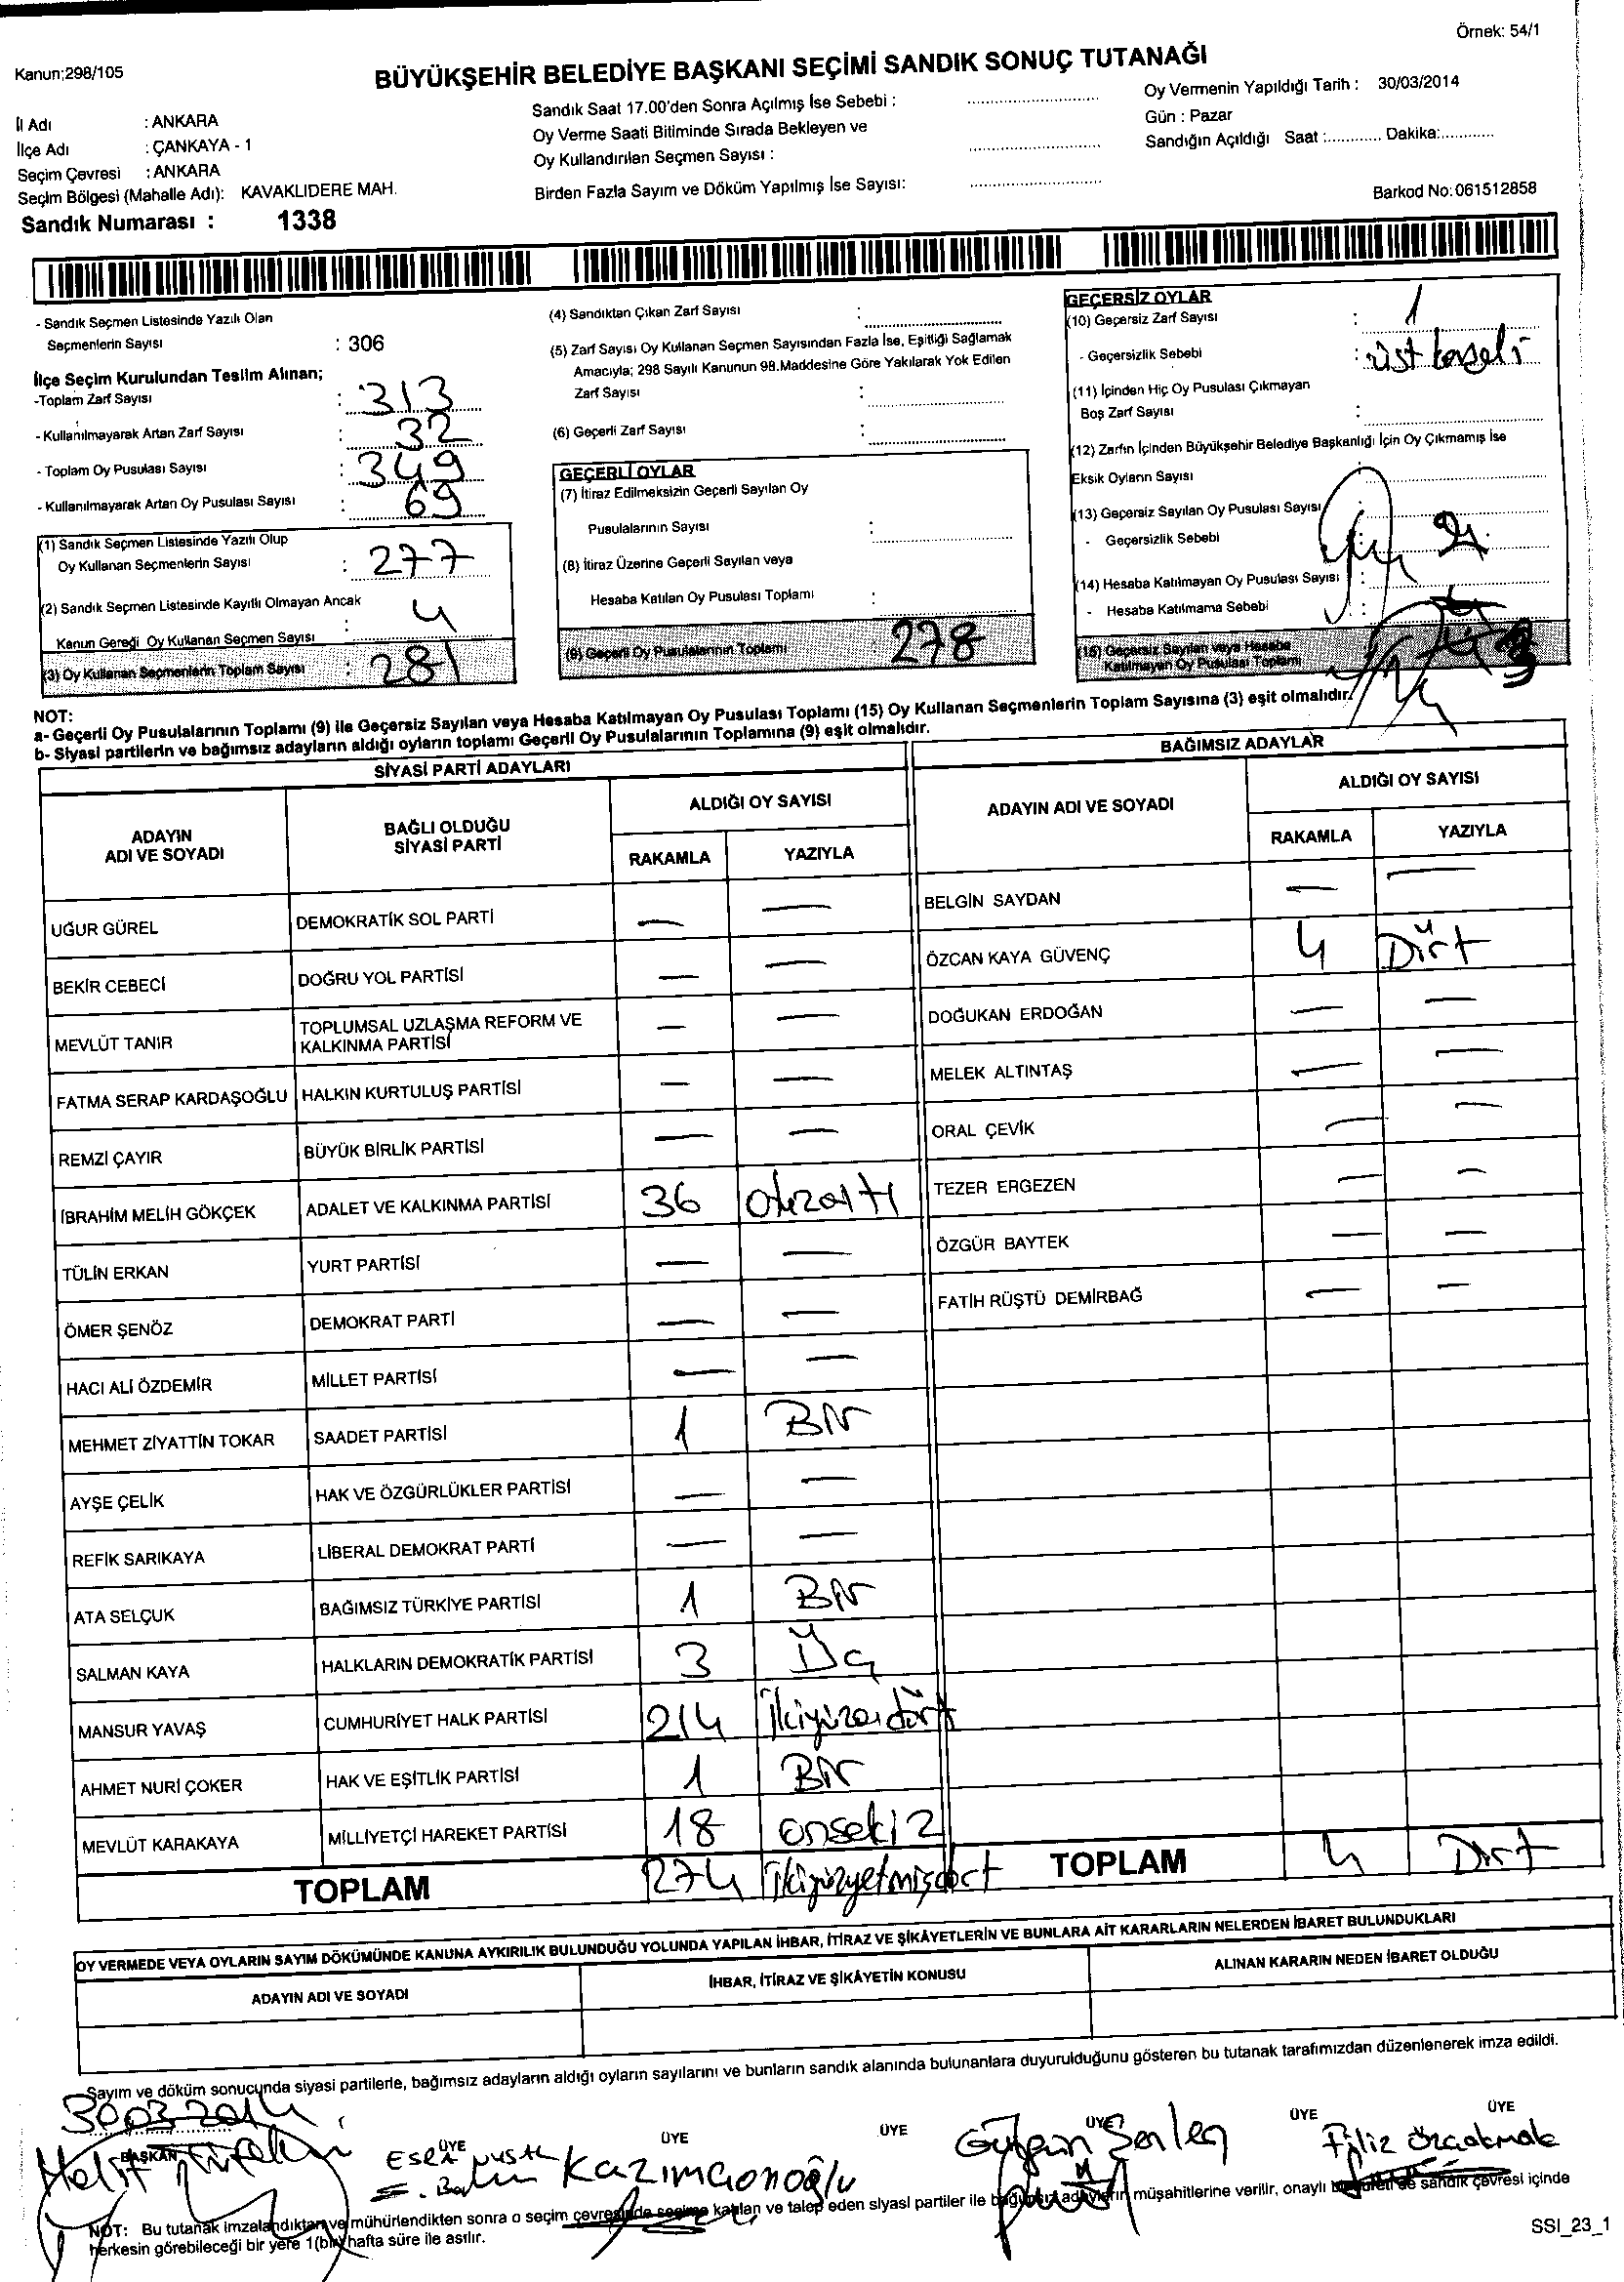 Örnek: 54/1
Kanun;298/105
BÜYÜKŞEHİR BELEDİYE BAŞKANI SEÇİMİ SANDIK SONUÇ TUTANAĞI
İl Adı : ANKARA
İlçe Adı : ÇANKAYA - 1
Seçim Çevresi : ANKARA
Seçim Bölgesi (Mahalle Adı): KAVAKLIDERE MAH.
Sandık Numarası : 1338
Sandık Saat 17.00'den Sonra Açılmış İse Sebebi :
Oy Verme Saati Bitiminde Sırada Bekleyen ve
Oy Kullandırılan Seçmen Sayısı :
Birden Fazla Sayım ve Döküm Yapılmış İse Sayısı:
Oy Vermenin Yapıldığı Tarih : 30/03/2014
Gün : Pazar
Sandığın Açıldığı Saat :............ Dakika:............
Barkod No:061512858
- Sandık Seçmen Listesinde Yazılı Olan
Seçmenlerin Sayısı : 306
İlçe Seçim Kurulundan Teslim Alınan;
-Toplam Zarf Sayısı : 313
- Kullanılmayarak Artan Zarf Sayısı : 32
- Toplam Oy Pusulası Sayısı : 349
- Kullanılmayarak Artan Oy Pusulası Sayısı : 69
(1) Sandık Seçmen Listesinde Yazılı Olup
Oy Kullanan Seçmenlerin Sayısı : 277
(2) Sandık Seçmen Listesinde Kayıtlı Olmayan Ancak
Kanun Gereği Oy Kullanan Seçmen Sayısı : 4
(3) Oy Kullanan Seçmenlerin Toplam Sayısı : 281
(4) Sandıktan Çıkan Zarf Sayısı :
(5) Zarf Sayısı Oy Kullanan Seçmen Sayısından Fazla İse, Eşitliği Sağlamak
Amacıyla; 298 Sayılı Kanunun 98.Maddesine Göre Yakılarak Yok Edilen
Zarf Sayısı :
(6) Geçerli Zarf Sayısı :
GEÇERLİ OYLAR
(7) İtiraz Edilmeksizin Geçerli Sayılan Oy
Pusulalarının Sayısı :
(8) İtiraz Üzerine Geçerli Sayılan veya
Hesaba Katılan Oy Pusulası Toplamı :
(9) Geçerli Oy Pusulalarının Toplamı : 278
GEÇERSİZ OYLAR
(10) Geçersiz Zarf Sayısı : 1
- Geçersizlik Sebebi : üst kaşeli
(11) İçinden Hiç Oy Pusulası Çıkmayan
Boş Zarf Sayısı :
(12) Zarfın İçinden Büyükşehir Belediye Başkanlığı İçin Oy Çıkmamış İse
Eksik Oyların Sayısı :
(13) Geçersiz Sayılan Oy Pusulası Sayısı
- Geçersizlik Sebebi :
(14) Hesaba Katılmayan Oy Pusulası Sayısı :
- Hesaba Katılmama Sebebi :
(15) Geçersiz Sayılan veya Hesaba
Katılmayan Oy Pusulası Toplamı 3
NOT:
a- Geçerli Oy Pusulalarının Toplamı (9) ile Geçersiz Sayılan veya Hesaba Katılmayan Oy Pusulası Toplamı (15) Oy Kullanan Seçmenlerin Toplam Sayısına (3) eşit olmalıdır.
b- Siyasi partilerin ve bağımsız adayların aldığı oyların toplamı Geçerli Oy Pusulalarının Toplamına (9) eşit olmalıdır.
SİYASİ PARTİ ADAYLARI
ADAYIN ADI VE SOYADI BAĞLI OLDUĞU SİYASİ PARTİ ALDIĞI OY SAYISI
RAKAMLA YAZIYLA
UĞUR GÜREL DEMOKRATİK SOL PARTİ — —
BEKİR CEBECİ DOĞRU YOL PARTİSİ — —
MEVLÜT TANIR TOPLUMSAL UZLAŞMA REFORM VE KALKINMA PARTİSİ — —
FATMA SERAP KARDAŞOĞLU HALKIN KURTULUŞ PARTİSİ — —
REMZİ ÇAYIR BÜYÜK BİRLİK PARTİSİ — —
İBRAHİM MELİH GÖKÇEK ADALET VE KALKINMA PARTİSİ 36 otuzaltı
TÜLİN ERKAN YURT PARTİSİ — —
ÖMER ŞENÖZ DEMOKRAT PARTİ — —
HACI ALİ ÖZDEMİR MİLLET PARTİSİ — —
MEHMET ZİYATTİN TOKAR SAADET PARTİSİ 1 Bir
AYŞE ÇELİK HAK VE ÖZGÜRLÜKLER PARTİSİ — —
REFİK SARIKAYA LİBERAL DEMOKRAT PARTİ — —
ATA SELÇUK BAĞIMSIZ TÜRKİYE PARTİSİ 1 Bir
SALMAN KAYA HALKLARIN DEMOKRATİK PARTİSİ 3 Üç
MANSUR YAVAŞ CUMHURİYET HALK PARTİSİ 214 İkiyüzondört
AHMET NURİ ÇOKER HAK VE EŞİTLİK PARTİSİ 1 Bir
MEVLÜT KARAKAYA MİLLİYETÇİ HAREKET PARTİSİ 18 onsekiz
TOPLAM 274 İkiyüzyetmişdört
BAĞIMSIZ ADAYLAR
ADAYIN ADI VE SOYADI ALDIĞI OY SAYISI
RAKAMLA YAZIYLA
BELGİN SAYDAN — —
ÖZCAN KAYA GÜVENÇ 4 Dört
DOĞUKAN ERDOĞAN — —
MELEK ALTINTAŞ — —
ORAL ÇEVİK — —
TEZER ERGEZEN — —
ÖZGÜR BAYTEK — —
FATİH RÜŞTÜ DEMİRBAĞ — —
TOPLAM 4 Dört
OY VERMEDE VEYA OYLARIN SAYIM DÖKÜMÜNDE KANUNA AYKIRILIK BULUNDUĞU YOLUNDA YAPILAN İHBAR, İTİRAZ VE ŞİKÂYETLERİN VE BUNLARA AİT KARARLARIN NELERDEN İBARET BULUNDUKLARI
ADAYIN ADI VE SOYADI İHBAR, İTİRAZ VE ŞİKÂYETİN KONUSU ALINAN KARARIN NEDEN İBARET OLDUĞU
Sayım ve döküm sonucunda siyasi partilerle, bağımsız adayların aldığı oyların sayılarını ve bunların sandık alanında bulunanlara duyurulduğunu gösteren bu tutanak tarafımızdan düzenlenerek imza edildi.
30.03.2014
BAŞKAN ÜYE ÜYE ÜYE ÜYE ÜYE ÜYE
Kazımcanoğlu
NOT: Bu tutanak imzalandıktan ve mühürlendikten sonra o seçim çevresinde seçime katılan ve talep eden siyasi partiler ile bağımsız adayların müşahitlerine verilir, onaylı bir sureti de sandık çevresi içinde
herkesin görebileceği bir yere 1(bir) hafta süre ile asılır.
SSI_23_1